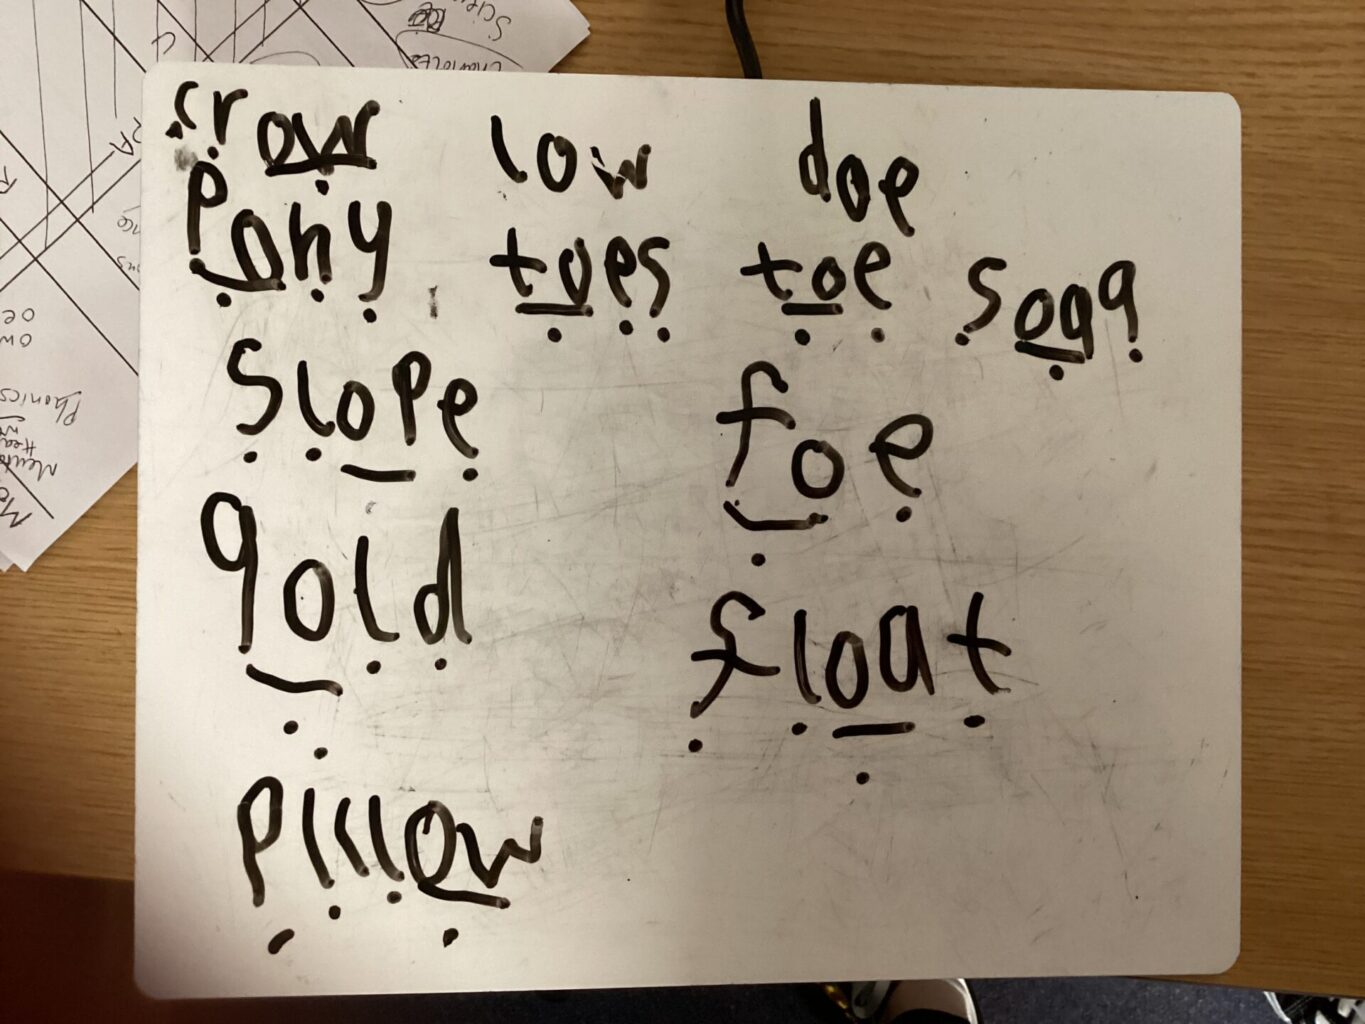 crow low doe
pony toes toe soaq
slope foe
gold float
pillow
Phonics
ow
oe
PA